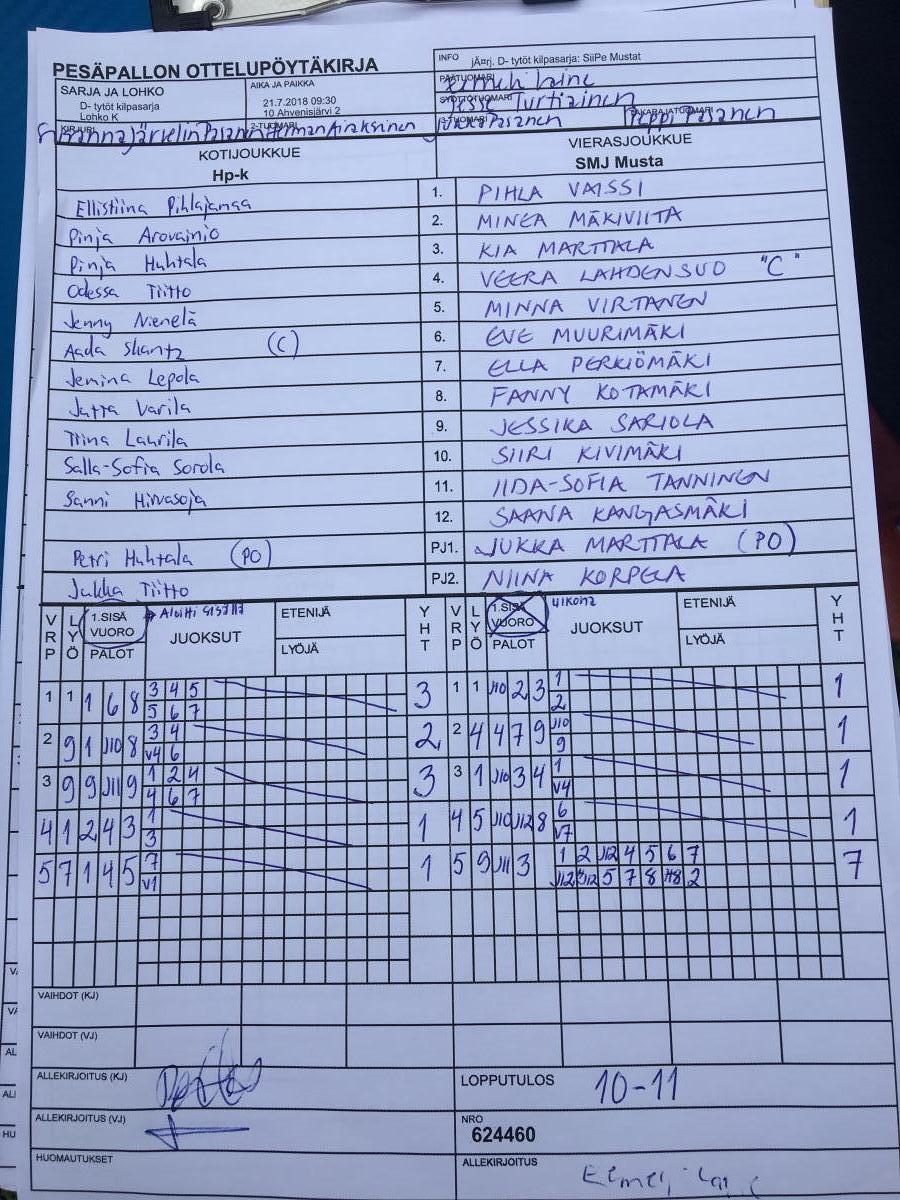 PESÄPALLON OTTELUPÖYTÄKIRJA
INFO jÄ¤rj. D- tytöt kilpasarja: SiiPe Mustat
SARJA JA LOHKO
D- tytöt kilpasarja
Lohko K
AIKA JA PAIKKA
21.7.2018 09:30
10 Ahvenisjärvi 2
PÄÄTUOMARI
SYÖTTÖTUOMARI Turtiainen
KIRJURI
2-TUOMARI
Jukka Pasanen
TAKARAJATUOMARI Peppi Pasanen
KOTIJOUKKUE
Hp-k
VIERASJOUKKUE
SMJ Musta
Ellistiina Pihlajamaa 1. PIHLA VAISSI
Pinja Arovainio 2. MINEA MÄKIVIITA
Pinja Huhtala 3. KIA MARTTALA
Odessa Tiitto 4. VEERA LAHDENSUO "C"
Jenny Nienelä 5. MINNA VIRTANEN
Aada Shantz (C) 6. EVE MUURIMÄKI
Jemina Lepola 7. ELLA PERKIÖMÄKI
Jutta Varila 8. FANNY KOTAMÄKI
Trina Laurila 9. JESSIKA SARIOLA
Salla-Sofia Sorola 10. SIIRI KIVIMÄKI
Sanni Hirvasoja 11. IIDA-SOFIA TANNINEN
12. SAANA KANGASMÄKI
Petri Huhtala (PO) PJ1. JUKKA MARTTALA (PO)
Jukka Tiitto PJ2. NIINA KORPELA
VRP LYÖ 1.SISÄ VUORO PALOT Aloitti sisällä JUOKSUT ETENIJÄ LYÖJÄ YHT VRP LYÖ 1.SISÄ VUORO PALOT ulkona JUOKSUT ETENIJÄ LYÖJÄ YHT
1 1 1 6 8 3 4 5 3 1 1 J10 2 3 1 1
5 6 7 2
2 9 1 J10 8 3 4 2 2 4 4 7 9 J10 1
V4 6 9
3 9 9 J11 9 1 2 4 3 3 1 J10 3 4 1 1
4 6 7 V4
4 1 2 4 3 1 1 4 5 J10 J12 8 6 1
3 V7
5 7 1 4 5 7 1 5 9 J11 3 1 2 J12 4 5 6 7 7
V1 J12 5 7 8 2
VAIHDOT (KJ)
VAIHDOT (VJ)
ALLEKIRJOITUS (KJ)
LOPPUTULOS 10-11
ALLEKIRJOITUS (VJ)
NRO
624460
HUOMAUTUKSET
ALLEKIRJOITUS